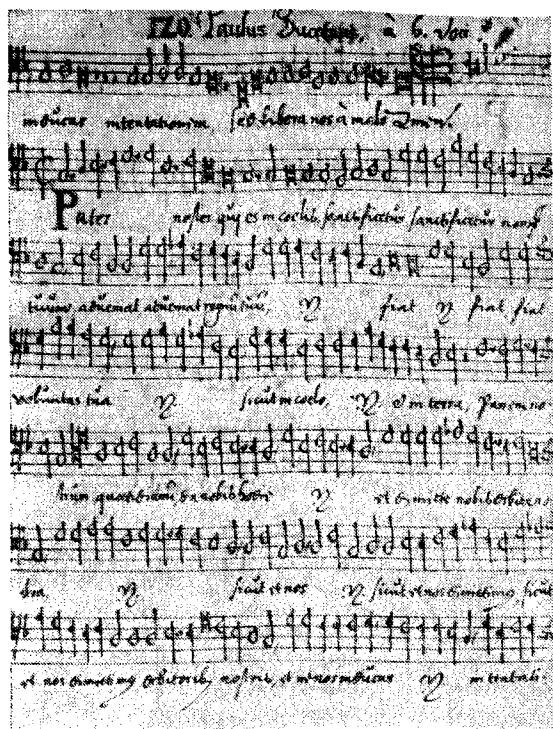 120. Paulus à 6. Voci
inducas in tentationem, sed libera nos à malo Amen.
Pater noster qui es in coelis, sanctificetur sanctificetur nomen
tuum, adveniat adveniat regnu tuu, ij fiat ij fiat fiat
voluntas tua ij sicut in coelo, ij. et in terra, Panem no
strum quotidianu, da nobis hodie ij et dimitte nobis debita no
stra, ij sicut et nos ij sicut et nos dimittimus, sicut
et nos dimittimus debitoribus nostris, et ne nos inducas ij in tentati-